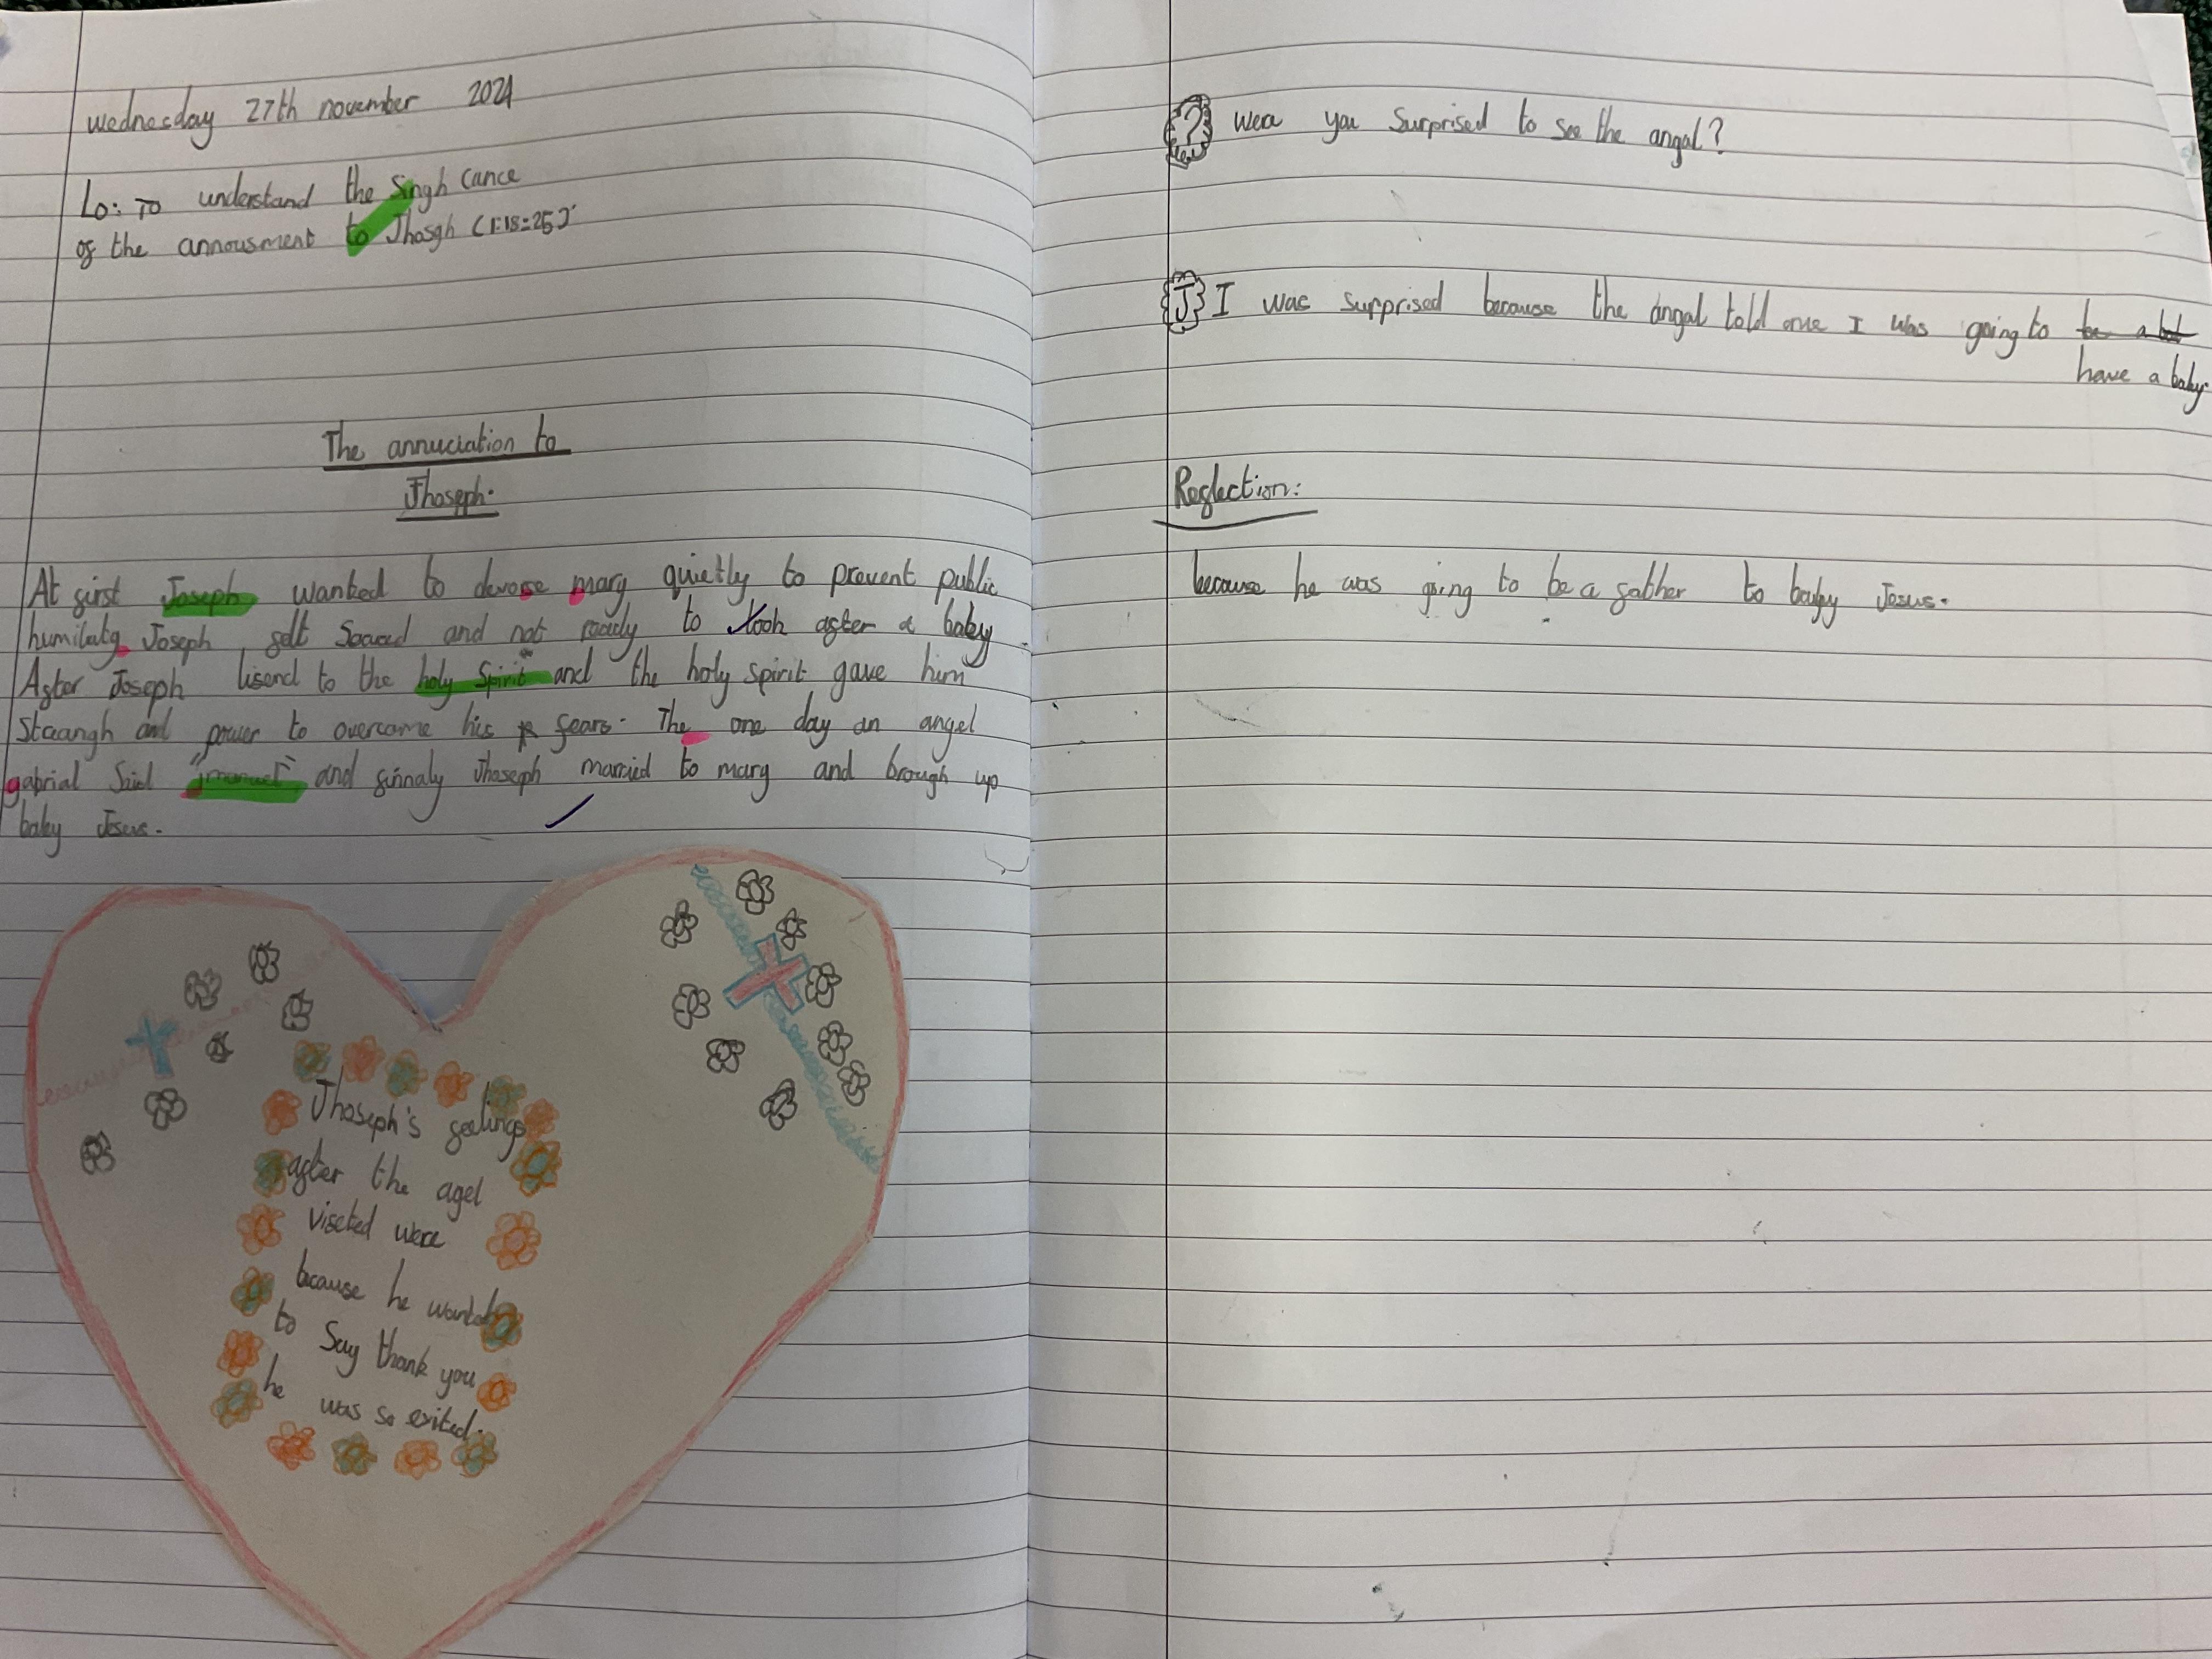 wednesday 27th november 2024
Lo: To understand the Singh cance
of the annousment to Jhosgh (1:18=25)
The annuciation to
Jhoseph.
At first Joseph wanted to devose mary quietly to prevent public
humilaty Joseph felt Scared and not ready to look after a baby.
After Joseph lisend to the holy Spirit and the holy spirit gave him
Straangh and power to overcome his fears. The one day an angel
gabrial Said "imanuel" and finnaly Jhoseph married to mary and brough up
baby Jesus.
Jhoseph's feelings
after the agel
viseted were
because he wanted
to Say thank you
he was so exited.
? Were you Surprised to see the angal?
J I was surprised because the angal told me I was going to be a
have a baby.
Reflection:
because he was going to be a father to baby Jesus.